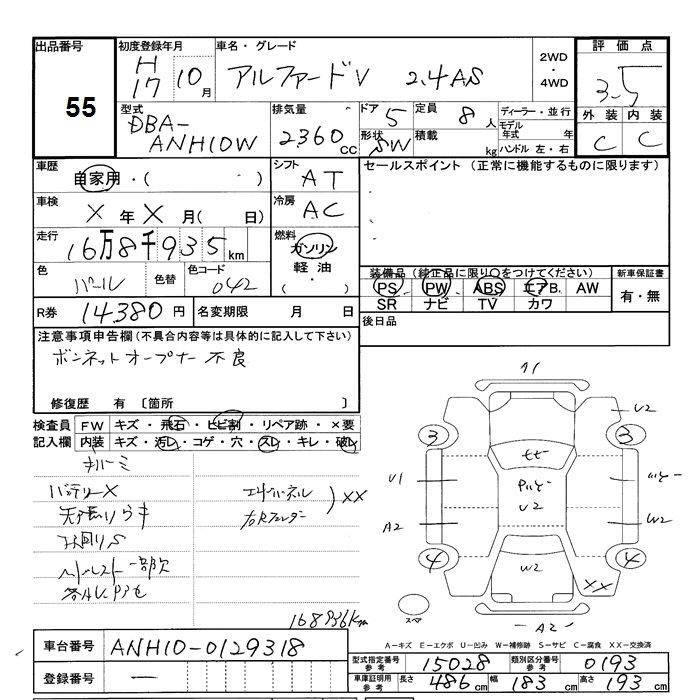 出品番号 初度登録年月 車名・グレード 2WD・4WD 評価点
55 H17 10月 アルファードV 2.4AS 3-5
型式 排気量 ドア 定員 ディーラー・並行 外装 内装
DBA-ANH10W 2360CC 5 8人 モデル年式 年 C C
形状 SW 積載 kg ハンドル 左・右
車歴 シフト セールスポイント (正常に機能するものに限ります)
自家用・( ) AT
車検 冷房
X年X月( 日) AC
走行 燃料
16万8千935km ガソリン
色 色替 色コード 軽油 装備品 (純正品に限り○をつけてください) 新車保証書
パール 042 ・( ) PS PW ABS エアB. AW 有・無
R券 14380円 名変期限 月 日 SR ナビ TV カワ
注意事項申告欄(不具合内容等は具体的に記入して下さい) 後日品
ボンネットオープナー不良
修復歴 有 〔箇所 〕
検査員 FW キズ・飛石・ヒビ割・リペア跡・×要
記入欄 内装 キズ・汚レ・コゲ・穴・スレ・キレ・破レ
バッテリーX
XX
168936km
A1
U2
3 3
U1
U2
A2 W2
4 4
W2
XX
A2
A-キズ E-エクボ U-凹み W-補修跡 S-サビ C-腐食 XX-交換済
車台番号 ANH10-0129318
型式指定番号 参考 15028 類別区分番号 参考 0193
登録番号 —
車庫証明用 参考 長さ 486cm 幅 183cm 高さ 193cm